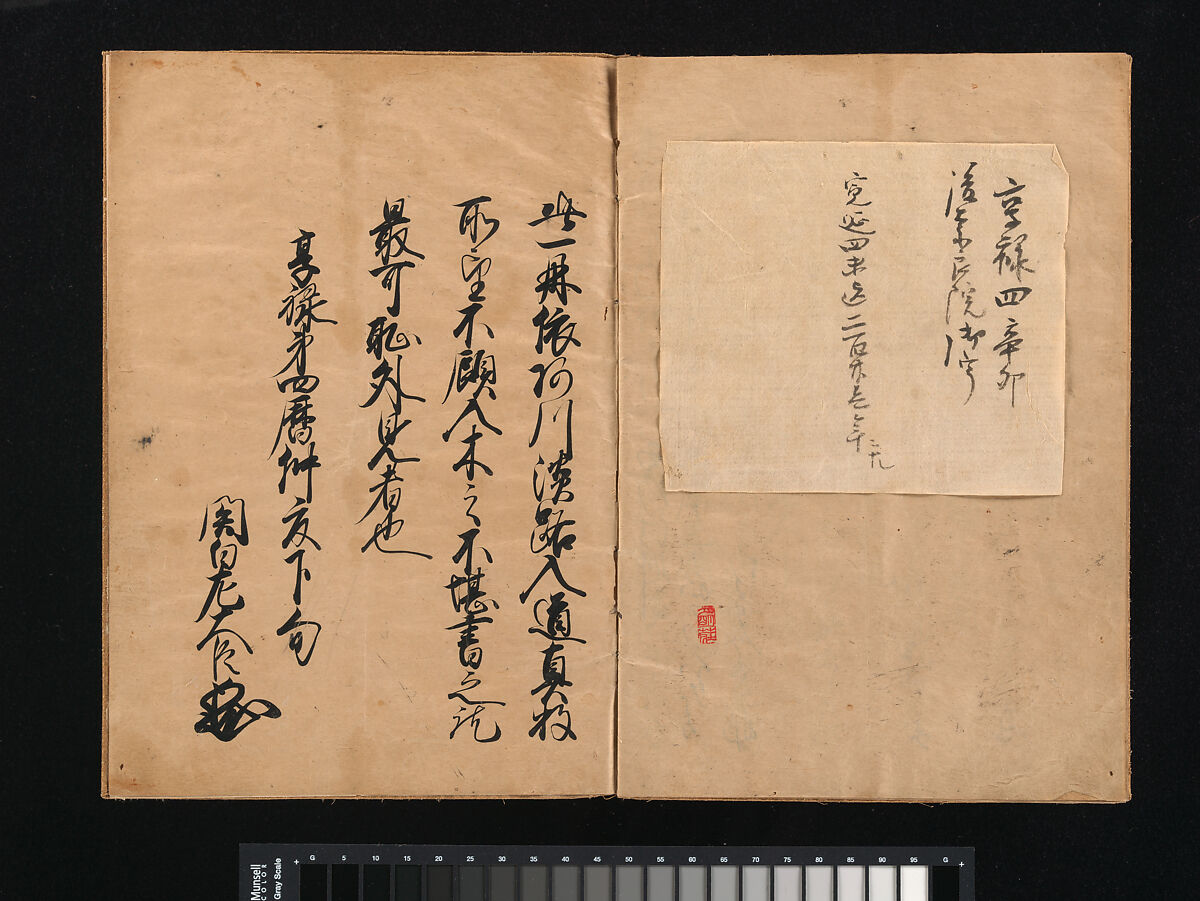 享禄四辛卯
後奈良院御宇
寛延四未迄二百廿
此一冊依阿川淡路入道真牧
所望不顧入木之不堪書之訖
最可恥外見者也
享禄第四暦仲夏下旬
関白左大臣
Munsell
COLOR
Gray Scale
G 5 10 15 20 25 30 35 40 45 50 55 60 65 70 75 80 85 90 95 G